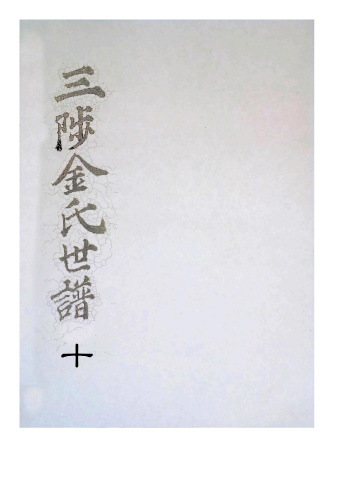 三陟金氏世譜
十